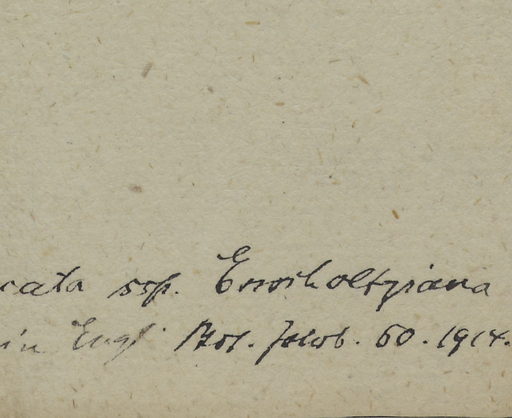 cata ssp. Eschscholtziana
in Engl. Bot. Jahrb. 50. 1914.